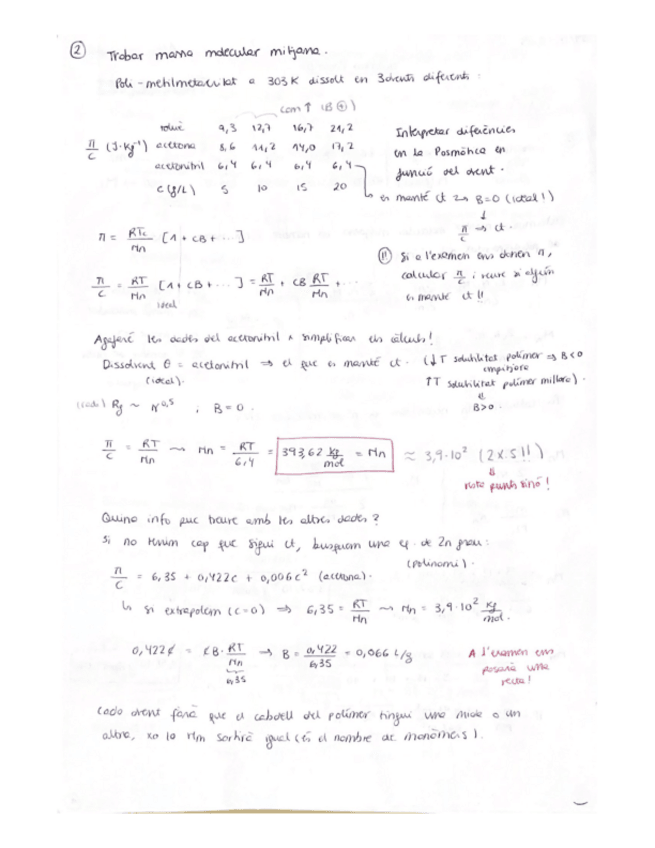 ② Trobar massa molecular mitjana.
Poli-metilmetacrilat a 303K dissolt en 3 dvents diferents:
com ↑ (B ⊕)
toluè 9,3 12,7 16,7 21,2
π/c (J·Kg⁻¹) acetona 8,6 11,2 14,0 17,2
acetonitril 6,4 6,4 6,4 6,4
c (g/L) 5 10 15 20
Interpretar diferències
en la Π osmòtica en
funció del dvent.
↳ es manté ct → B=0 (ideal!)
↓
π/c → ct.
π = RTc/Mn [1 + cB + ...]
π/c = RT/Mn [1 + cB + ...] = RT/Mn + cB RT/Mn + ...
ideal
(!!) Si a l'examen ens donen π,
calcular π/c i veure si algún
es manté ct!!
Agafaré les dades del acetonitril x simplificar els càlculs!
Dissolvent θ = acetonitril ⇒ el que es manté ct. (↓T solubilitat polímer ⇒ B<0
(ideal).
empitjora
↑T solubilitat polímer millora).
B>0.
Rg ~ N^0,5 ; B=0.
π/c = RT/Mn ⇝ Mn = RT/6,4 = 393,62 kg/mol = Mn ≈ 3,9·10² (2 x.s!!)
resta punts sinó!
Quina info puc traure amb les altres dades?
Si no tenim cap que sigui ct, busquem una eq. de 2n grau:
(polinomi).
π/c = 6,35 + 0,422c + 0,006c² (acetona).
↳ si extrapolem (c=0) ⇒ 6,35 = RT/Mn ⇝ Mn = 3,9·10² kg/mol.
0,422c = cB · RT/Mn → B = 0,422/6,35 = 0,066 L/g
6,35
A l'examen em
posarà una
recta!
Cada dvent farà que el cabdell del polímer tingui una mida o un
altra, xo la Mm sortirà igual (és el nombre de monòmers).